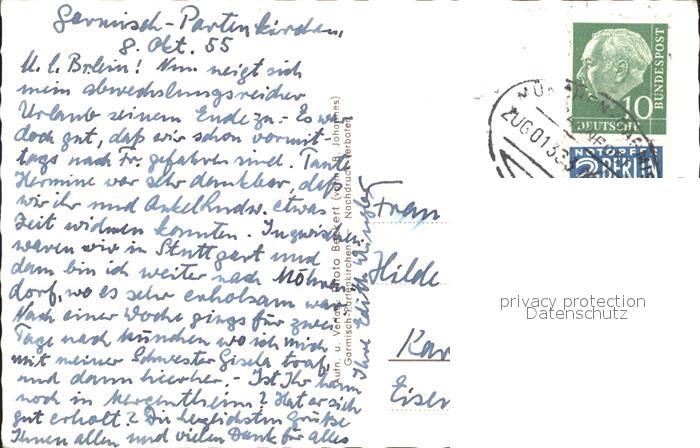 Garmisch-Partenkirchen,
8. Okt. 55
M. l. Brlein! Nun neigt sich
mein abwechslungsreicher
Urlaub seinem Ende zu. Es war
doch gut, daß wir schon vormit-
tags nach Fr. gefahren sind. Tante
Hermine war sehr dankbar, daß
wir ihr und Onkel Ludw. etwas
Zeit widmen konnten. Inzwischen
waren wir in Stuttgart und
dann bin ich weiter nach Möhren
dorf, wo es sehr erholsam war
Nach einer Woche gings für zwei
Tage nach München wo ich mich
mit meiner Schwester Gisela traf,
und dann hierher. - Ist Ihr Mann
noch in Mergentheim? Hat er sich
gut erholt? Die herzlichsten Grüße
Ihnen allen und vielen Dank für alles
Ihre Edith
Aufn. u. Verlag: Photo Beckert (vorm. B. Johannes)
Garmisch-Partenkirchen Nachdruck verboten
Frau
Hilde
Kar
Eisen
10
BUNDESPOST
DEUTSCHE
NOTOPFER
2
ZUG 01335
privacy protection
Datenschutz